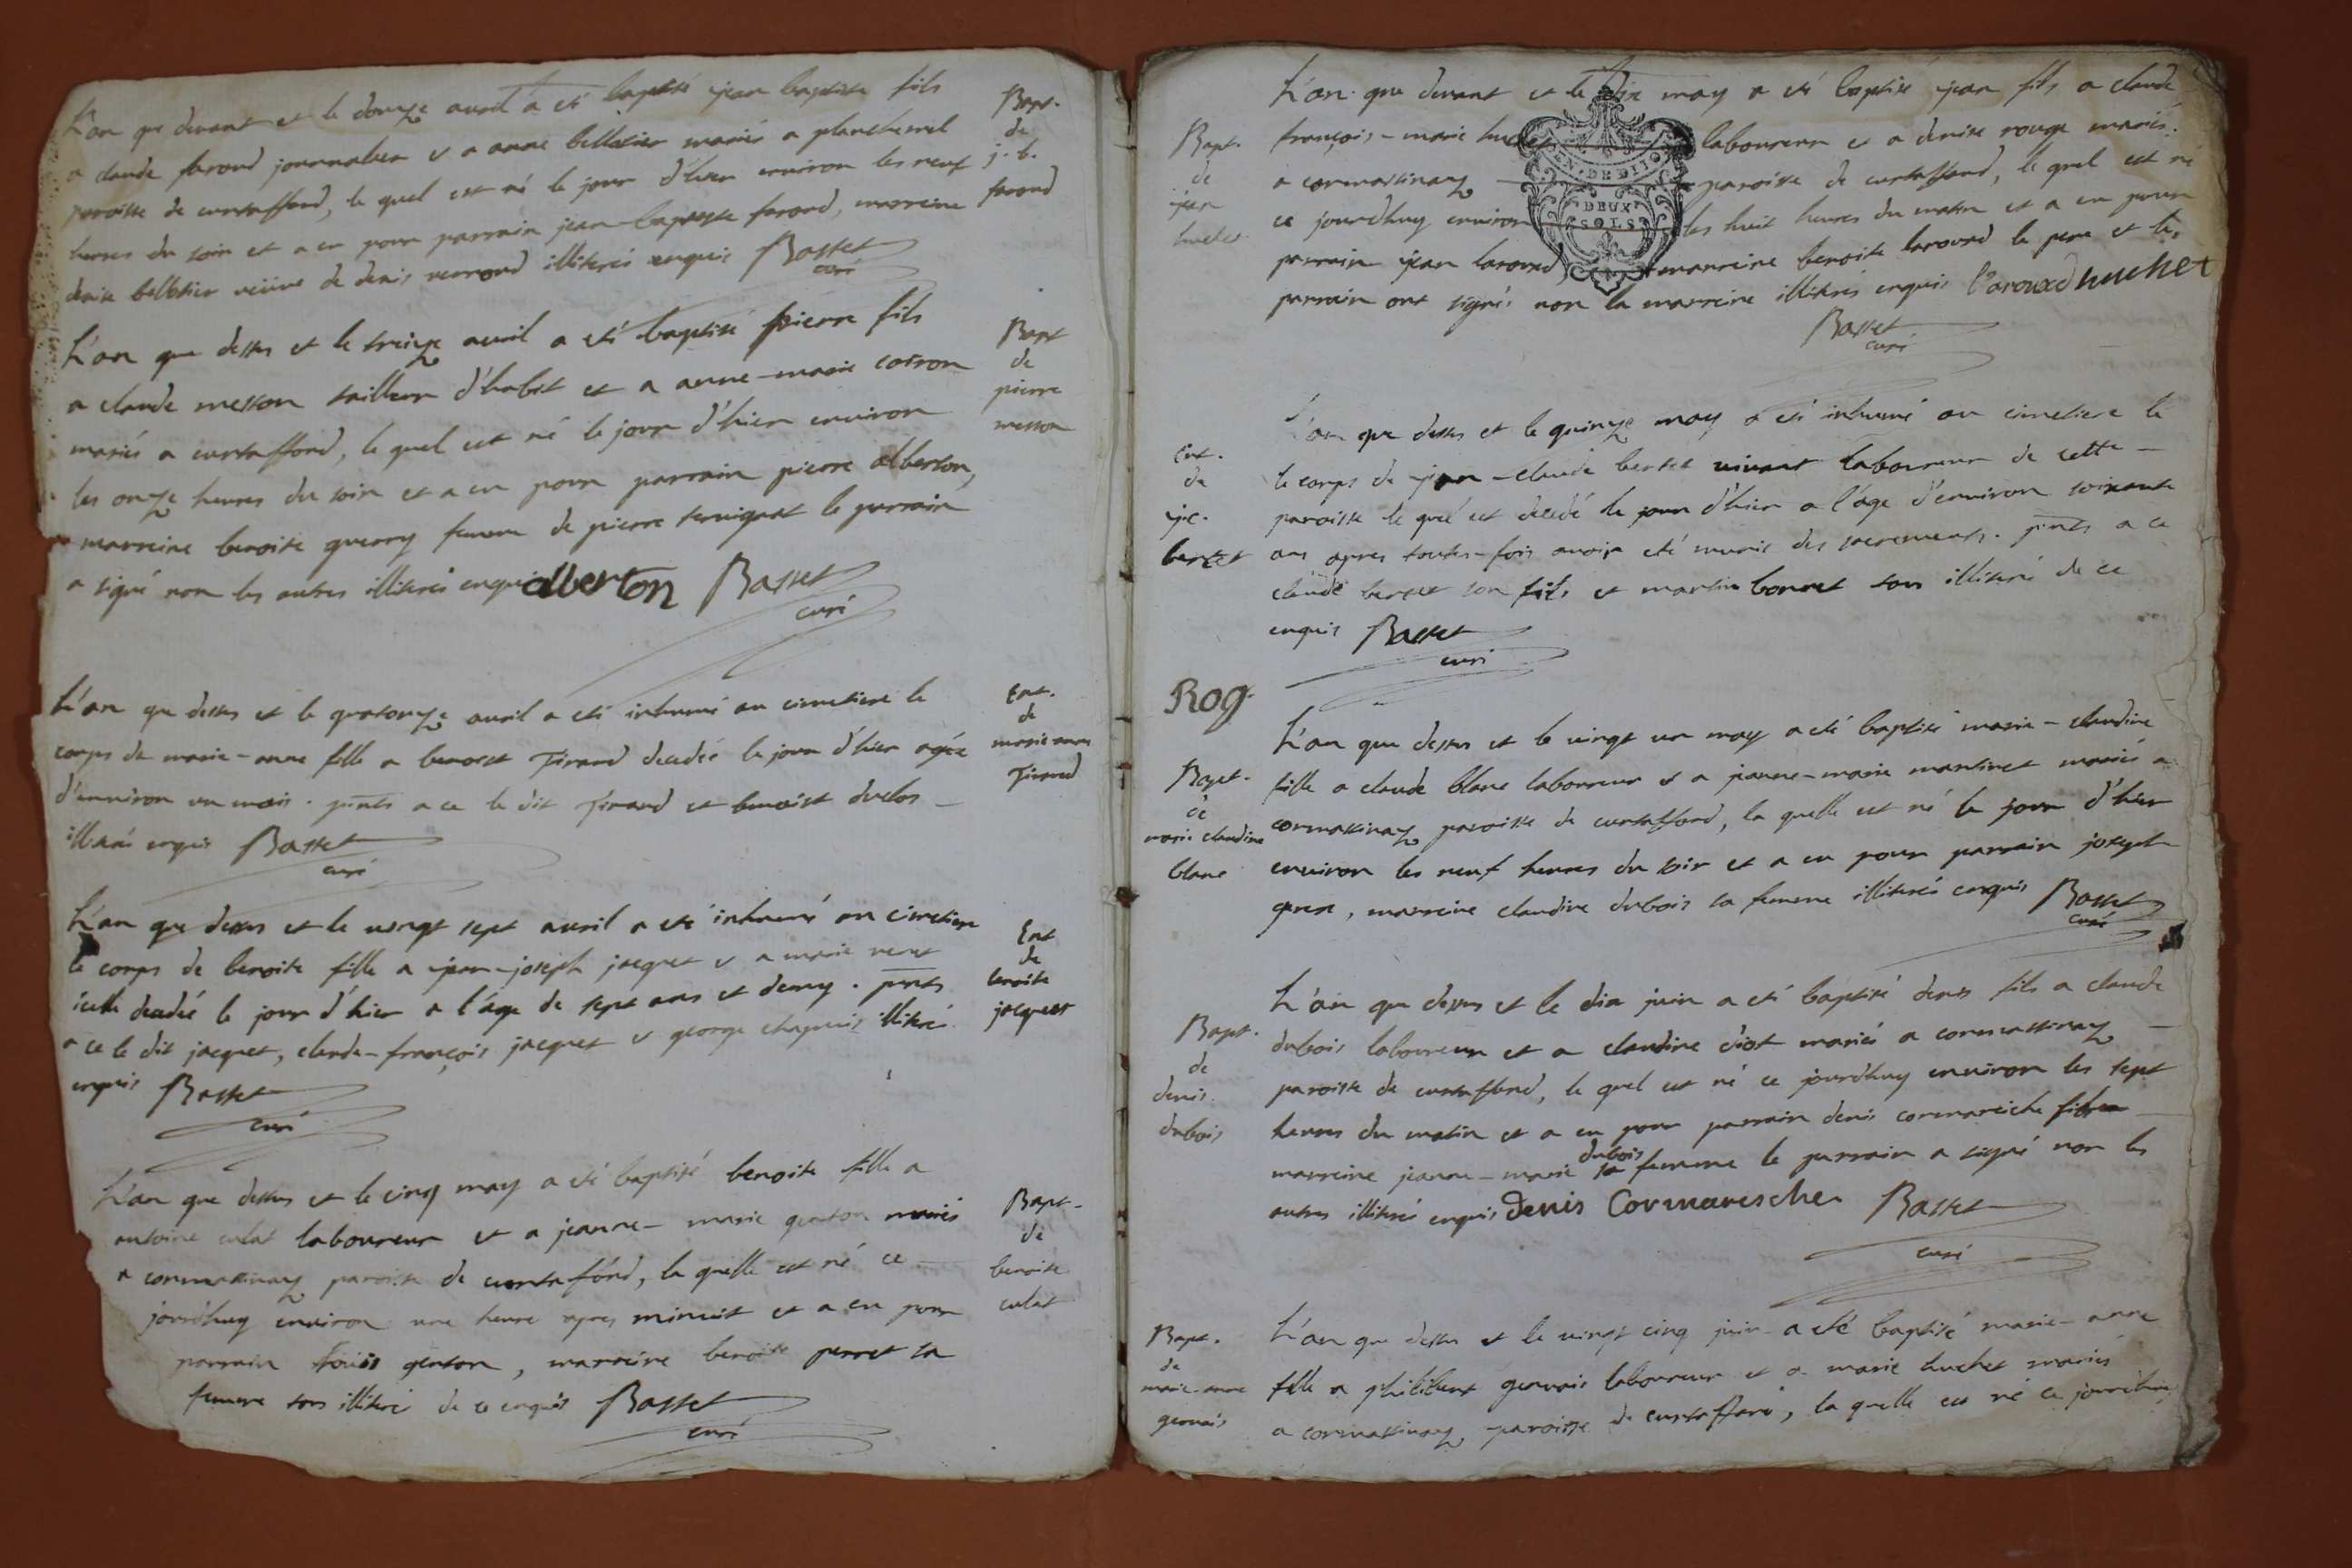 L'an que devant et le douze avril a eté baptisé jean baptiste fils
a claude farond journalier et a anne bellatier mariés a planchemel
paroisse de curtaffond, le quel est né le jour d'hier environ les neuf
heures du soir et a eu pour parrain jean baptiste farond, marreine
denise bellatier veüve de denis verrond illiterés enquis Basset
curé
Bapt.
de
j. b.
farond
L'an que dessus et le treize avril a eté baptisé pierre fils
a claude messon tailleur d'habit et a anne-marie cotron
mariés a curtaffond, le quel est né le jour d'hier environ
les onze heures du soir et a eu pour parrain pierre alberton,
marreine benoite guerry femme de pierre servignat le parrain
a signé non les autres illiterés enquis alberton Basset
curé
Bapt
de
pierre
messon
L'an que dessus et le quatorze avril a eté inhumé au cimetiere le
corps de marie-anne fille a benoist Tirand decedée le jour d'hier agée
d'environ un mois. pnts a ce le dit Tirand et benoist duclos
illiterés enquis Basset
curé
Ent.
de
marie anne
Tirand
L'an que dessus et le vingt sept avril a eté inhumé au cimetiere
le corps de benoite fille a jean-joseph jacquet et a marie
icelle decedée le jour d'hier a l'age de sept ans et demy. pnts
a ce le dit jacquet, claude-françois jacquet et george chapuis illiteré
enquis Basset
curé
Ent
de
benoite
jacquet
L'an que dessus et le cinq may a eté baptisé benoite fille a
antoine culat laboureur et a jeanne-marie genton mariés
a cormassinay paroisse de curtafond, la quelle est né ce
jourdhuy environ une heure apres minuit et a eu pour
parrain louis genton, marreine benoite perret sa
femme tous illiteré de ce enquis Basset
curé
Bapt-
de
benoite
culat
L'an que devant et le dix may a eté baptisé jean fils a claude
françois-marie huchet laboureur et a denise rouge mariés
a cormassinay paroisse de curtaffond, le quel est né
ce jourdhuy environ les huit heures du matin et a eu pour
parrain jean larouxd, marreine benoite larouxd le pere et le
parrain ont signés non la marreine illiterés enquis Larouxd huchet
Basset
curé
EN. DE DIJON
DEUX
SOLS
Bapt.
de
jean
huchet
L'an que dessus et le quinze may a eté inhumé au cimetiere le
le corps de jean-claude bertet vivant laboureur de cette
paroisse le quel est decedé le jour d'hier a l'age d'environ soixante
ans apres toutes-fois avoir eté munis des sacrements. pnts a ce
claude bertet son fils et martin bonnet tous illiteré de ce
enquis Basset
curé
Ent.
de
j. c.
bertet
Rog.
L'an que dessus et le vingt un may a eté baptisé marie-claudine
fille a claude blanc laboureur et a jeanne-marie martinet mariés a
cormassinay paroisse de curtaffond, la quelle est né le jour d'hier
environ les neuf heures du soir et a eu pour parrain joseph
, marreine claudine dubois sa femme illiterés enquis Basset
curé
Bapt.
de
marie claudine
blanc
L'an que dessus et le dix juin a eté baptisé denis fils a claude
dubois laboureur et a claudine diot mariés a cormassinay
paroisse de curtaffond, le quel est né ce jourdhuy environ les sept
heures du matin et a eu pour parrain denis cormareiche
marreine jeanne-marie dubois sa femme le parrain a signé non les
autres illiterés enquis denis Cormaresche Basset
curé
Bapt.
de
denis
dubois
L'an que dessus et le vingt cinq juin a eté baptisé marie-anne
fille a philibert gervais laboureur et a marie huchet mariés
a cormassinay paroisse de curtaffond, la quelle est né ce jourdhuy
Bapt.
de
marie-anne
gervais